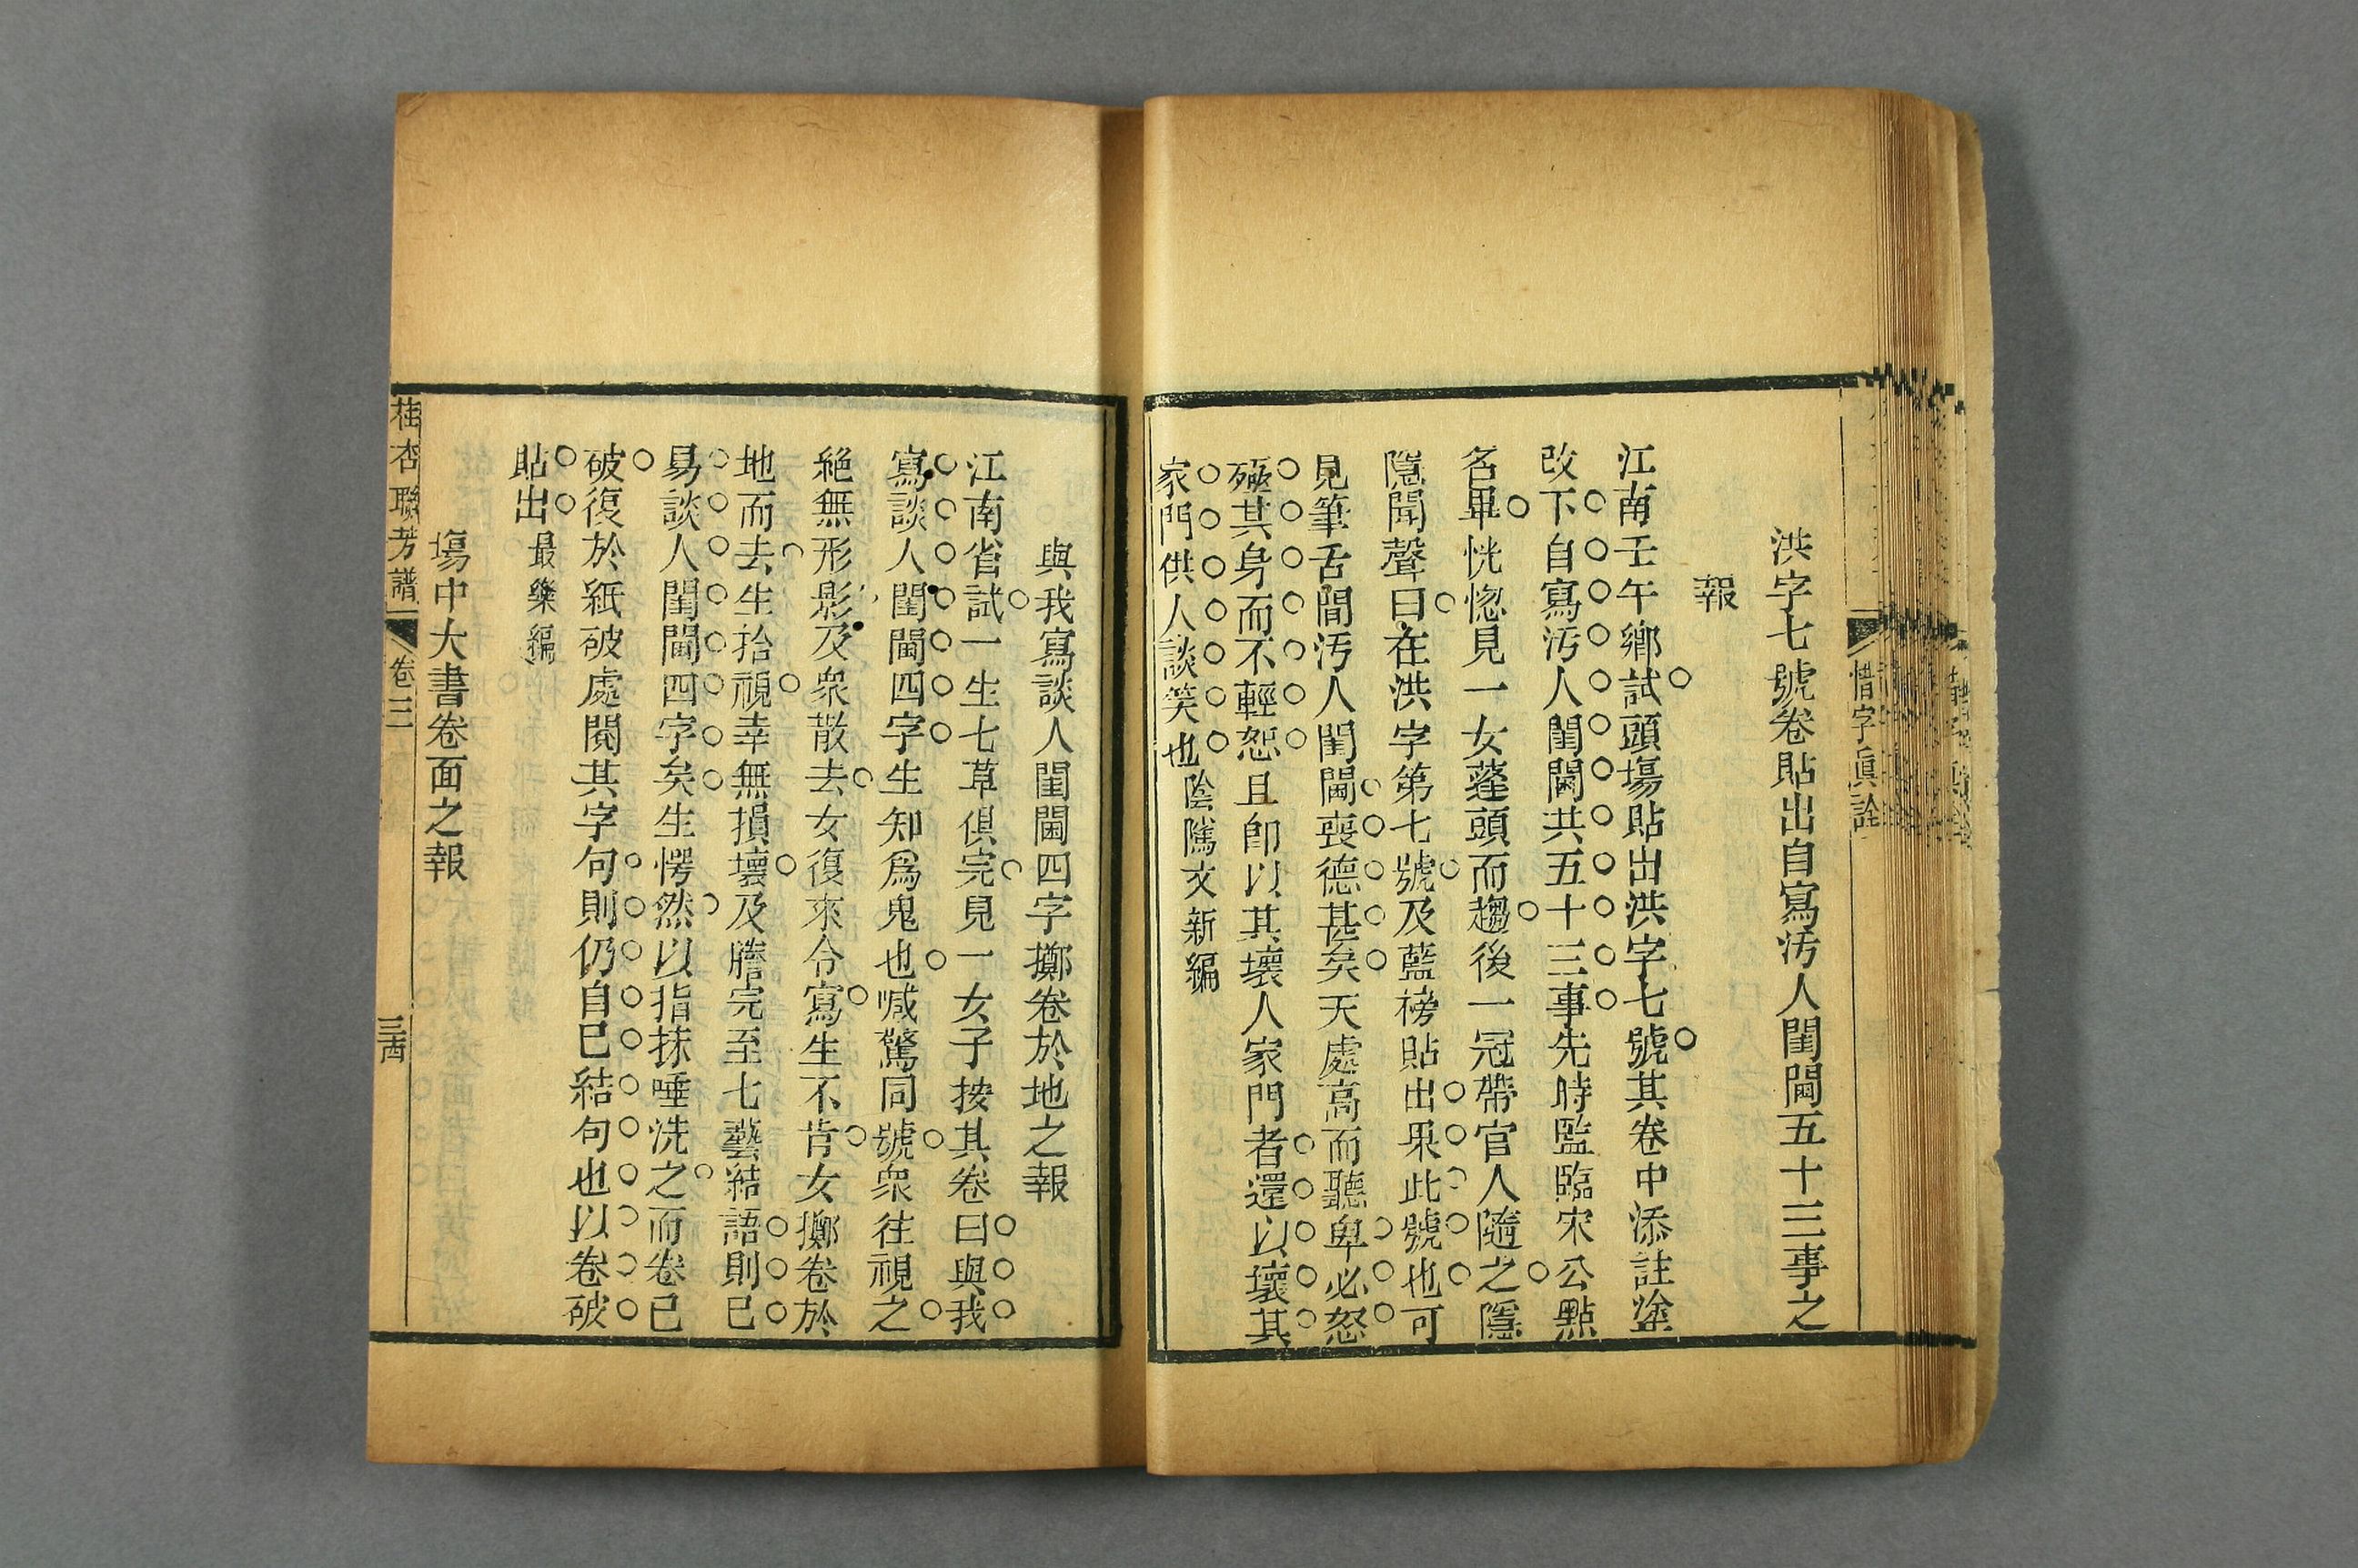 惜字眞詮
洪字七號卷貼出自寫汚人閨閫五十三事之
報
江南壬午鄉試頭塲貼出洪字七號其卷中添註塗
改下自寫汚人閨閫共五十三事先時監臨宋公點
名畢恍惚見一女蓬頭而趨後一冠帶官人隨之隱
隱聞聲曰在洪字第七號及藍榜貼出果此號也可
見筆舌間汚人閨閫喪德甚矣天處高而聽卑必怒
殛其身而不輕恕且卽以其壞人家門者還以壞其
家門供人談笑也陰隲文新編
與我寫談人閨閫四字擲卷於地之報
江南省試一生七草俱完見一女子按其卷曰與我
寫談人閨閫四字生知爲鬼也喊驚同號衆往視之
絕無形影及衆散去女復來令寫生不肯女擲卷於
地而去生拾視幸無損壞及謄完至七藝結語則已
易談人閨閫四字矣生愕然以指抹唾洗之而卷已
破復於紙破處閱其字句則仍自已結句也以卷破
貼出最樂編
塲中大書卷面之報
桂杏聯芳譜
卷三